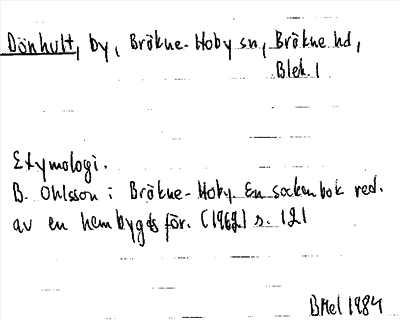 Dönhult, by, Bräkne-Hoby sn, Bräkne hd,
Blek. l
Etymologi.
B. Ohlsson i Bräkne-Hoby. En sockenbok red.
av en hembygds för. (1962) s. 121
BHel 1984